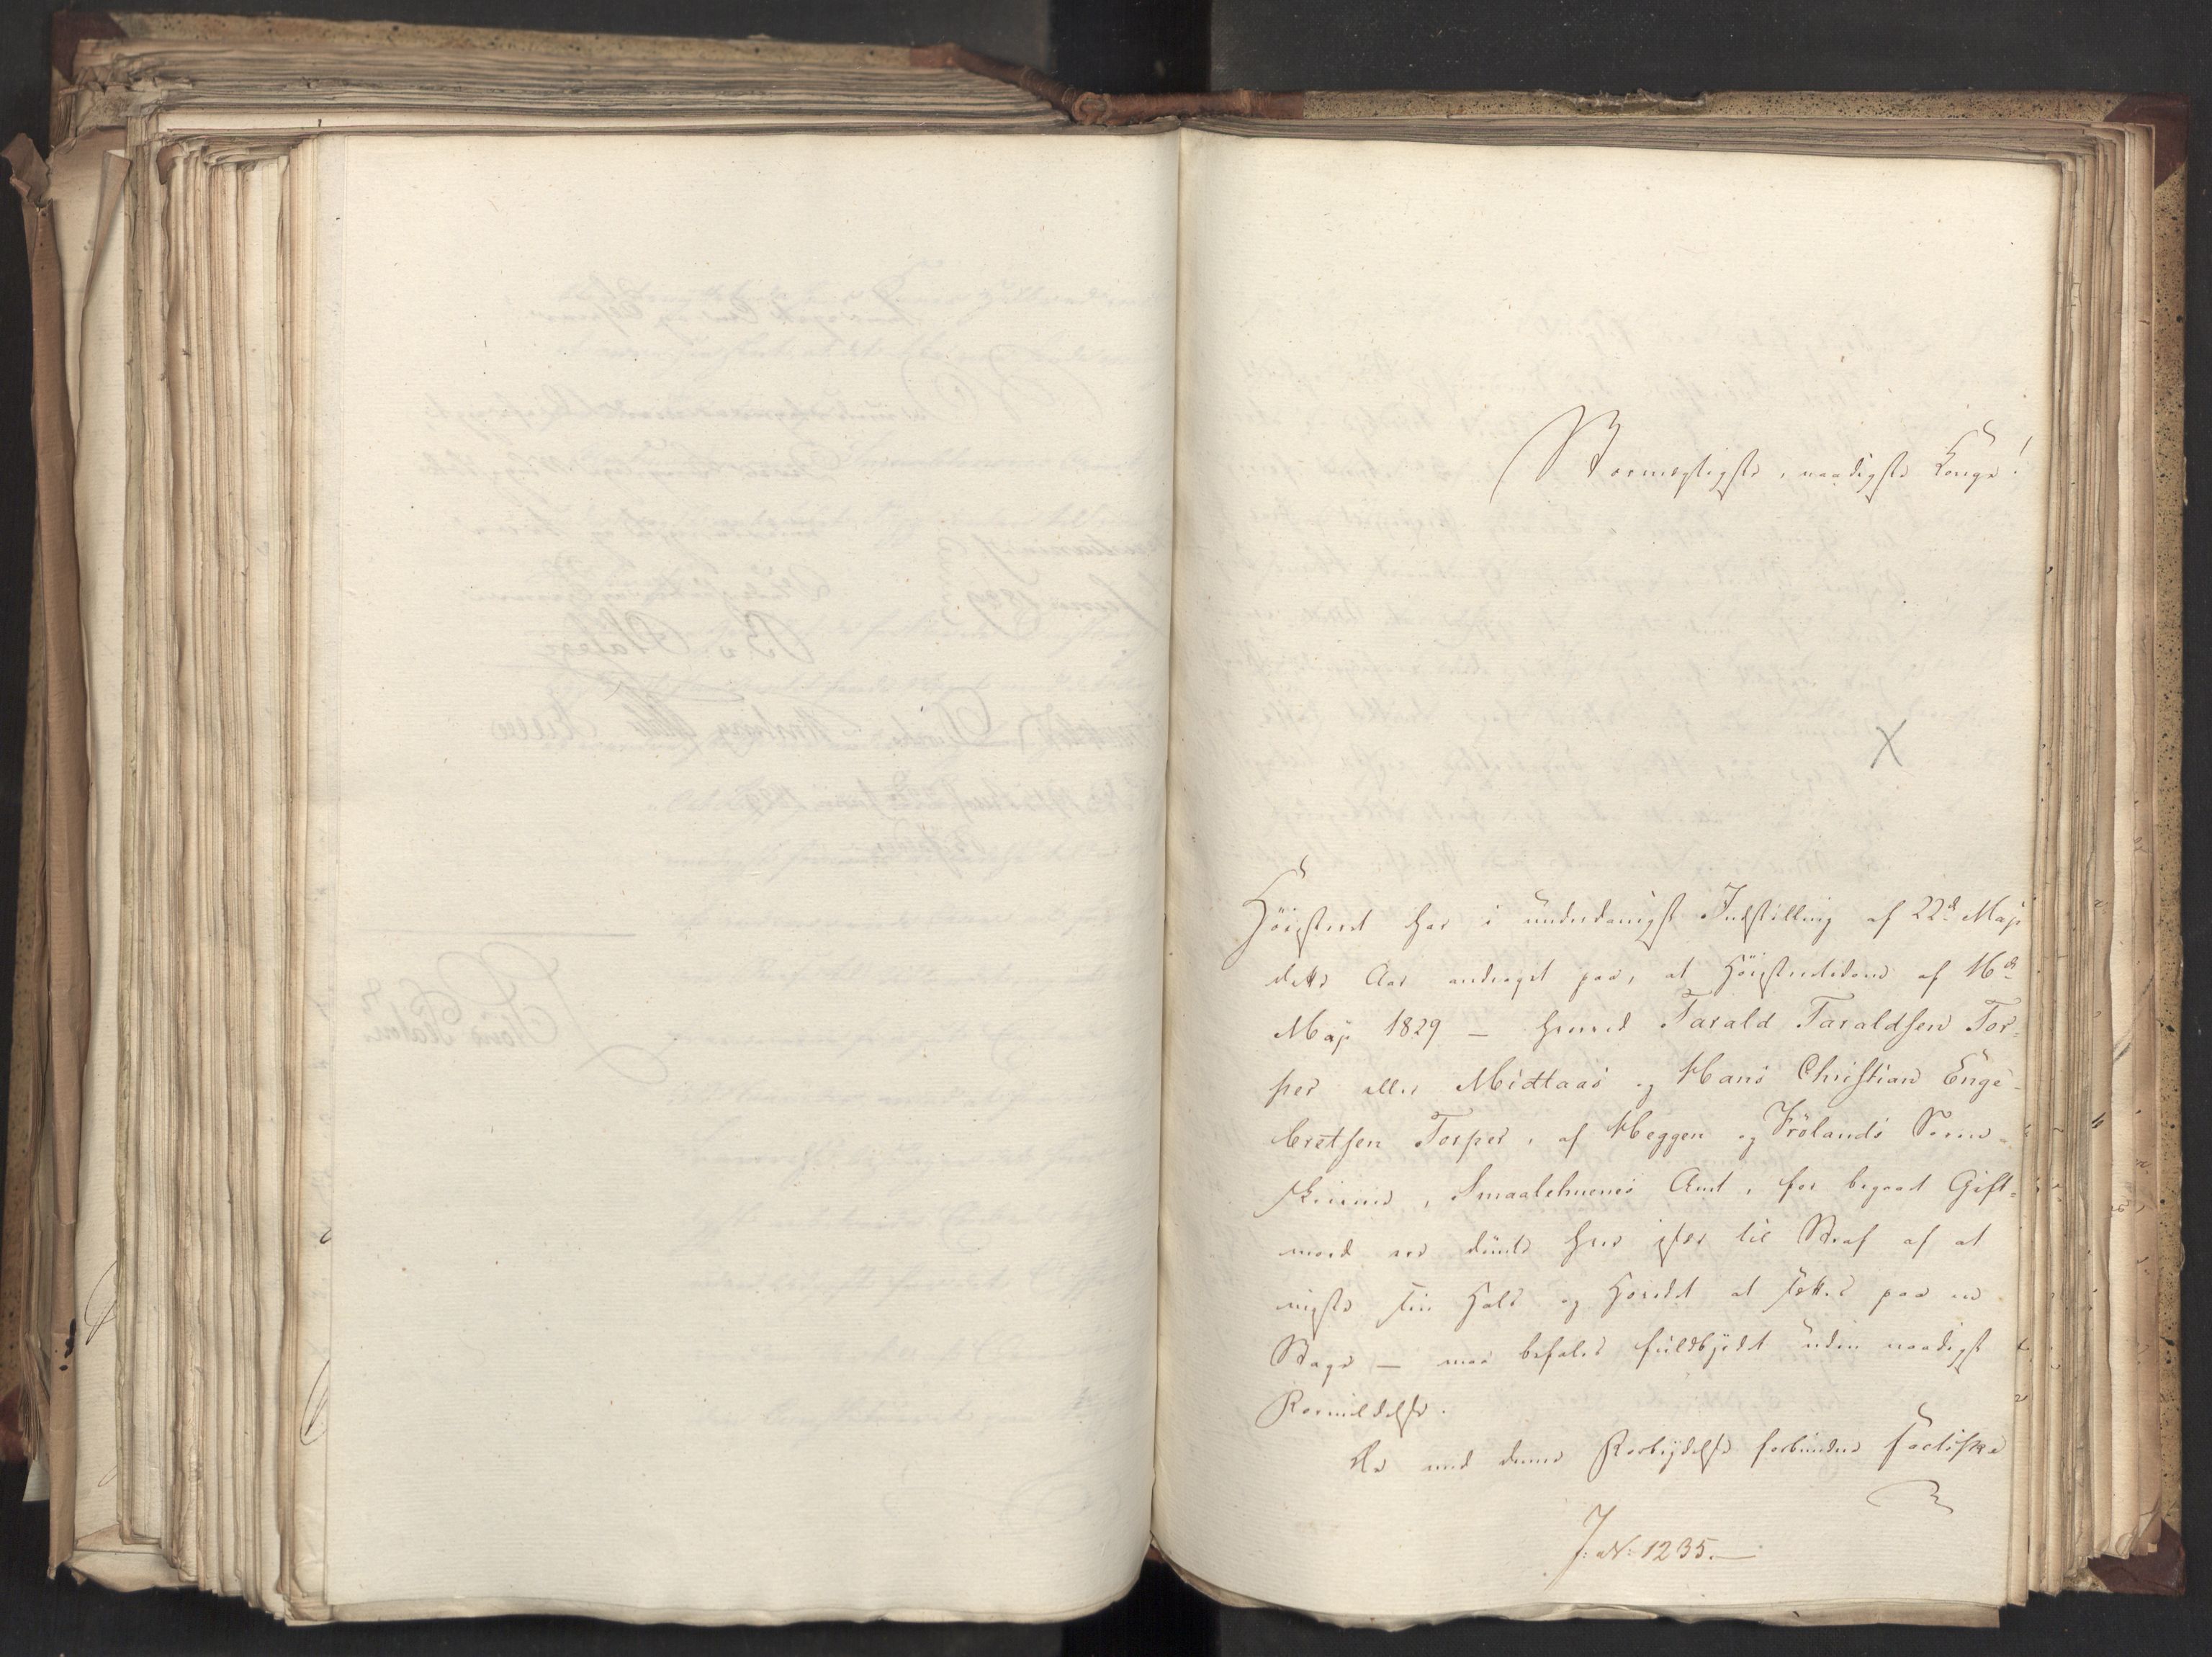 Stormægtigste, naadigste Konge!
Höiesteret har i underdanigst Indstilling af 22d Maji
dette Aar andraget paa, at Höiesteretsdom af 16d
Maji 1829 – hvorved Tarald Taraldsen Tor-
per eller Midtaas og Hans Christian Enge-
bretsen Torper, af Heggen og Frölands Soren-
skriverie, Smaalehnenes Amt, for begaaet Gift-
mord ere dömte hver især til Straf af at
miste sin Hals og Hovedet at sættes paa en
Stage – maa befales fuldbyrdet uden naadigst
Formildelse.
De med denne Forbrydelse forbundne factiske
J: N: 1235.